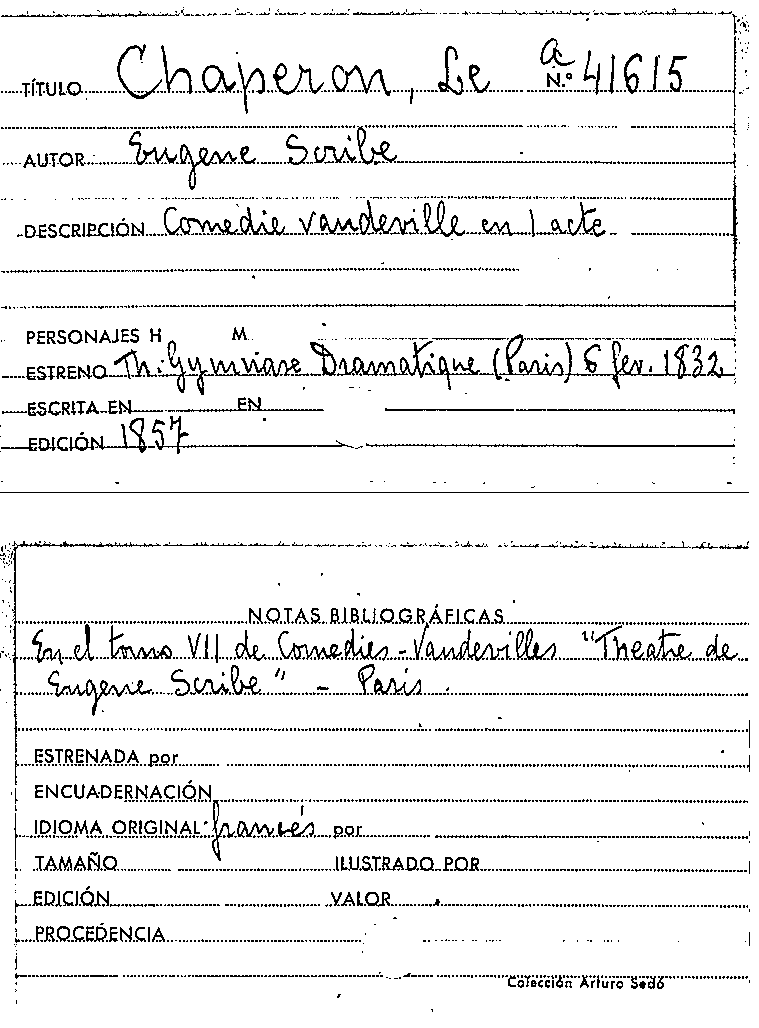 TÍTULO Chaperon, Le a N.º 41615
AUTOR Eugene Scribe
DESCRIPCIÓN Comedie vaudeville en 1 acte
PERSONAJES H M.
ESTRENO Th. Gymnase Dramatique (Paris) 6 fev. 1832
ESCRITA EN EN
EDICIÓN 1857
NOTAS BIBLIOGRÁFICAS
En el tomo VII de Comedies-Vaudevilles "Theatre de
Eugene Scribe" - Paris.
ESTRENADA por
ENCUADERNACIÓN
IDIOMA ORIGINAL: francés por
TAMAÑO ILUSTRADO POR
EDICIÓN VALOR
PROCEDENCIA
Colección Arturo Sedó